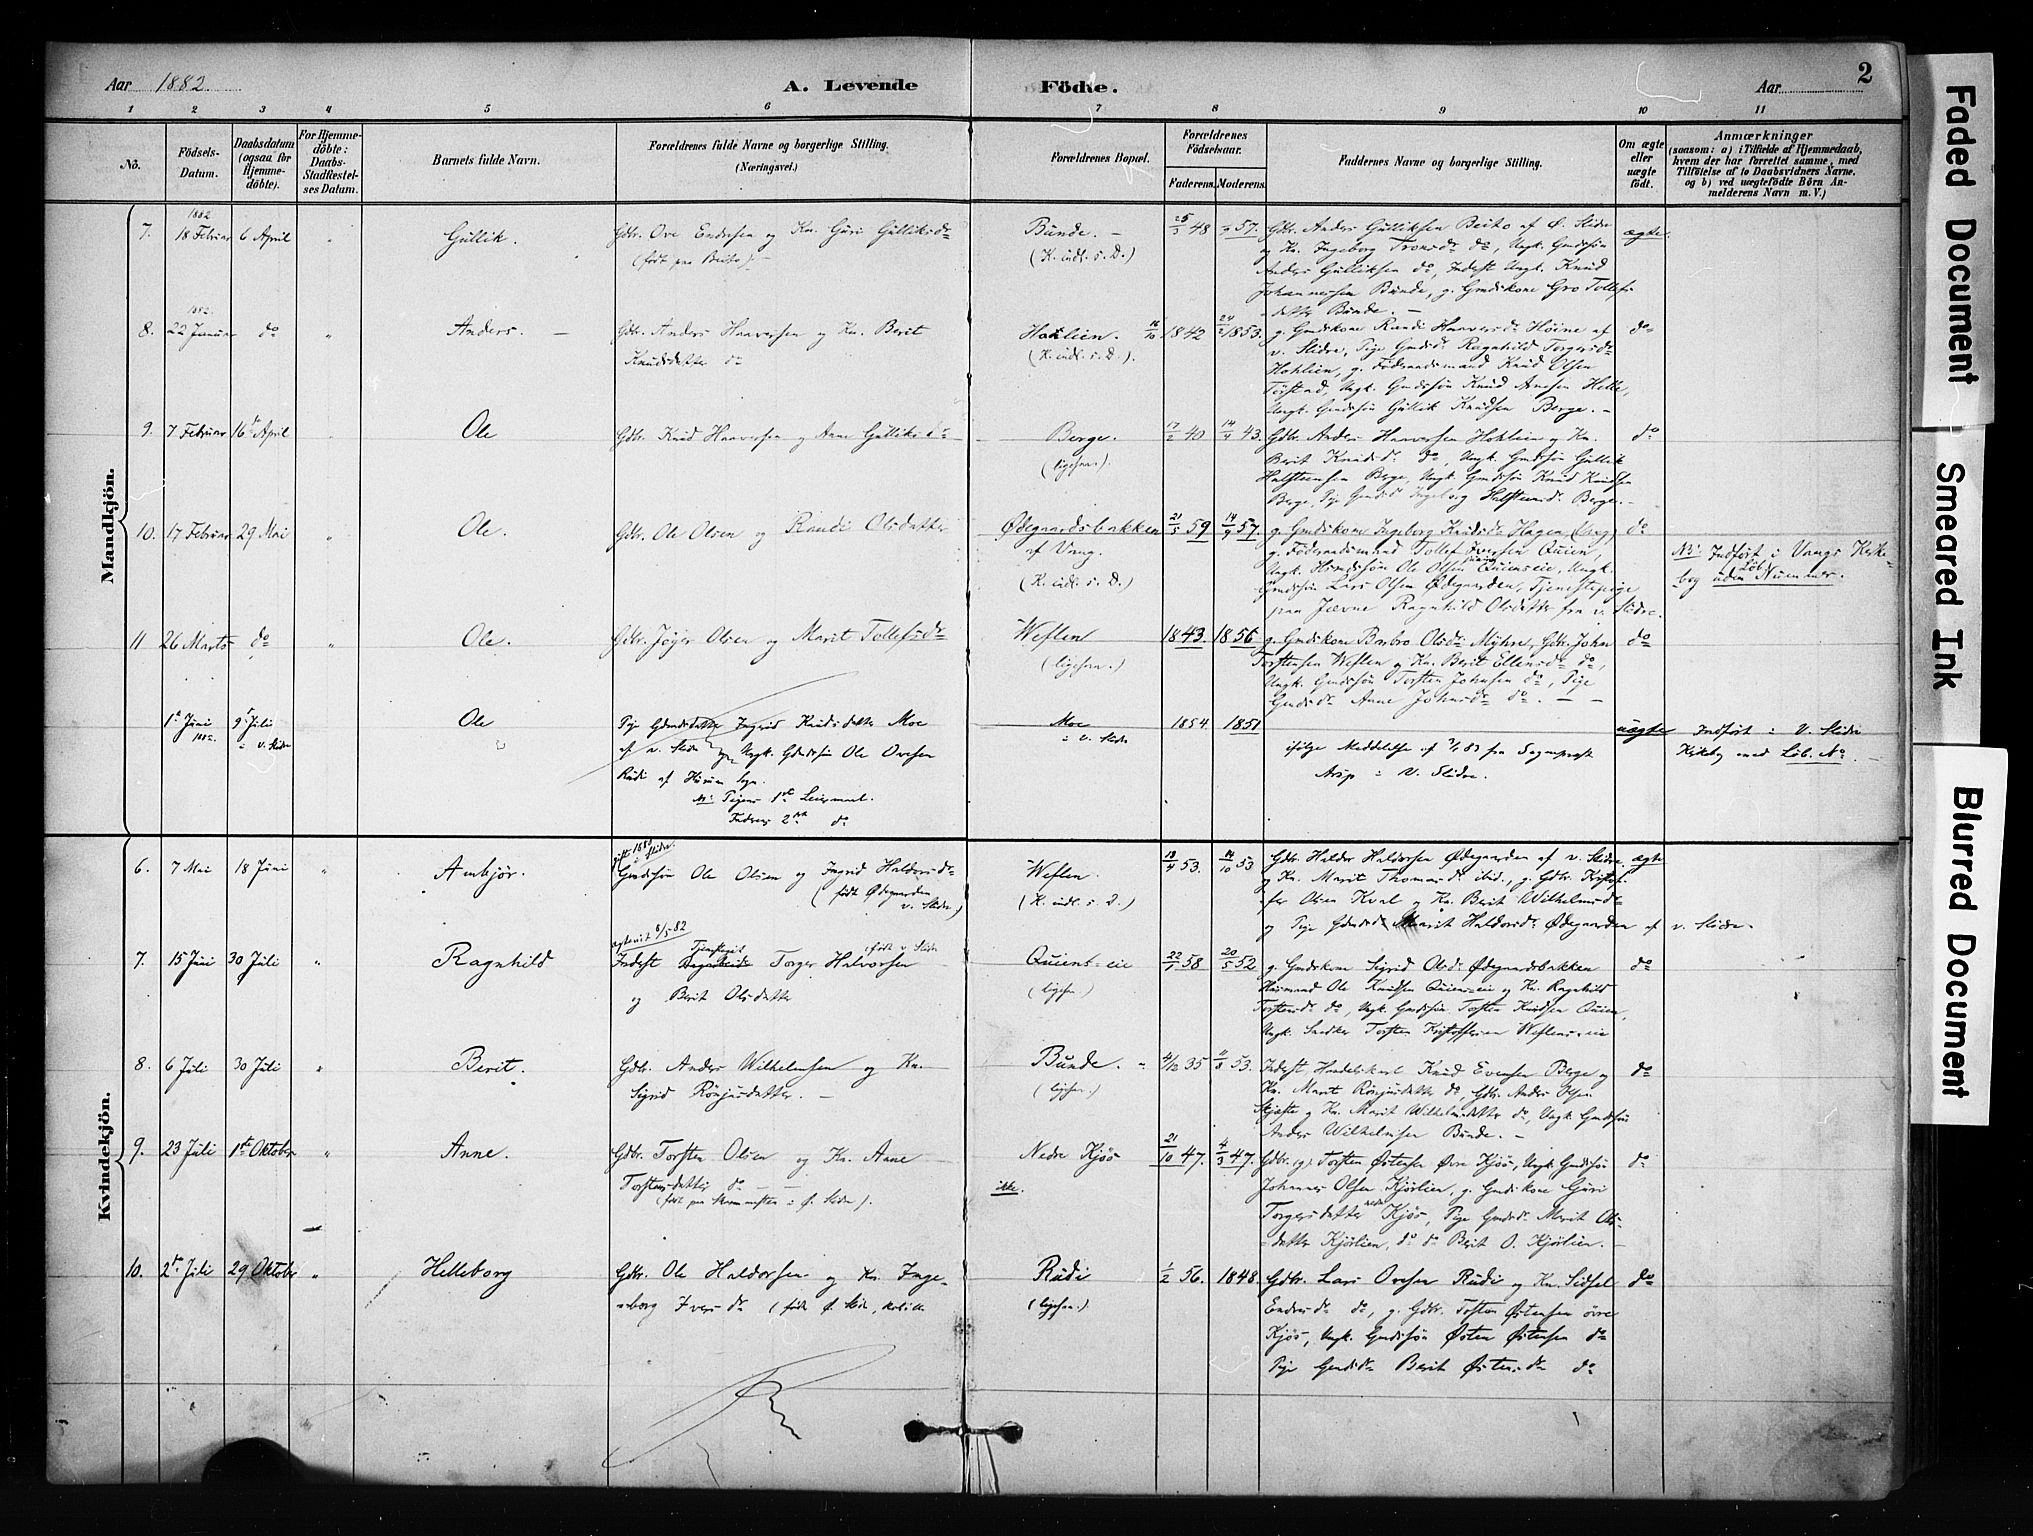 Aar 1882.
A. Levende
Födte.
Aar
2
1 2 3 4 5 6 7 8 9 10 11
No.
Födsels-
Datum.
Daabsdatum
(ogsaa for
Hjemme-
döbte).
For Hjemme-
döbte:
Daabs-
Stadfæstel-
ses Datum.
Barnets fulde Navn.
Forældrenes fulde Navne og borgerlige Stilling.
(Næringsvei.)
Forældrenes Bopæl.
Forældrenes
Födselsaar.
Faderens. Moderens.
Faddernes Navne og borgerlige Stilling.
Om ægte
eller
uægte
født.
Anmærkninger
(saasom: a) i Tilfælde af Hjemmedaab,
hvem der har forrettet samme, med
Tilföielse af to Daabsvidners Navne.
og b) ved uægtefödte Börn An-
melderens Navn m.V.)
Mandkjön.
7. 1882 18 Februar 6 April " Gullik.
Gdbr. Ove Endresen og Kn. Guri Gulliksdr
(født paa Beito). –
Bunde. –
(K. indl. s. D.)
25/3 48 57.
Gdbr. Anders Gulliksen Beito af Ø. Slidre
og Kn. Ingeborg Tronsdr do, Ungk. Gmdssøn
Anders Gulliksen do, Inderst Ungk. Knud
Johannessen Bunde, g. Gmdskone Gro Tollefs-
datter Bunde. –
ægte.
8. 1882. 22 Januar do " Anders. –
Gdbr. Anders Haaversen og Kn. Berit
Knudsdatter do
Hohlien.
(K. indl. s. D.).
16/10 1842 24/2 1853.
g. Gmdskone Randi Haaversdr Høine af
v. Slidre, Pige Gmdsdr Ragnhild Torgersdr
Hohlien, g. Föderaadsmand Knud Olsen
Törstad, Ungk. Gmdssön Knud Arnesen Helle,
Ungk. Gmdssön Gullik Knudsen Berge. –
do
9. 7 Februar 16de April Ole
Gdbr. Knud Haaversen og Anne Gulliksdr
Berge.
(ligesaa.).
17/2 40 14/9 43.
Gdbr. Anders Haaversen Hohlien og Kn.
Berit Knudsdr do, Ungk. Gmdssön Gullik
Halsteinsen Berge, Ungk. Gmdssön Knud Knudsen
Berge, Pige Gmdsdr Ingeborg Halsteinsdr Berge. –
do
10. 17 Februar 29 Mai " Ole.
Gdbr. Ole Olsen og Randi Olsdatter
Ødegaardsbakken
af Vang.
(K. indl. s. D.)
21/5 59 14/9 57.
g. Gmdskone Ingeborg Knudsdr Hagen (Vang)
g. Föderaadsmand Tollef Iversen Quien,
Ungk. Husmdssön Ole Olsen Quienseie, Ungk.
Gmdssön Lars Olsen Ødegaarden, Tjenestepige
paa Jævne Ragnhild Olsdatter fra v. Slidre.
do
NB: Indført i Vangs Kirke-
bog uden Løb Nummer.
11 26 Marts do " Ole.
Gdbr. Jøger Olsen og Marit Tollefsdr
Weflen
(ligesaa.)
1843. 1856
g. Gmdskone Barbro Olsdr Myhre, Gdbr. John
Torstensen Weflen og Kn. Berit Ellensdr do,
Ungk. Gmdssön Torsten Johnsen do, Pige
Gmdsdr Anne Johnsdr do. – –
do
1ste Juni 1882. 9de Juli i v. Slidre Ole
Pige Gdmdsdatter Ingrid Knudsdatter Moe
af v. Slidre og Ungk. Gdmdssøn Ole Ovesen
Rudi af Hurum Sogn.
NB: Pigens 1ste Leiermaal.
Faderens 2det do
Moe
i v. Slidre
1854. 1851
ifølge Meddelelse af 7/1 83 fra Sogneprest
Arup i V. Slidre.
uægte
Indført i V. Slidre
Kirkebog med Löb. No. –
Kvindekjön.
6. 7 Mai 18 Juni " Ambjör.
gift 1881 i Slidre.
Gmdssøn Ole Olsen og Ingrid Haldorsdr
(født Ødegaarden
v. Slidre)
Weflen.
(K. indl. s. D.)
13/4 53. 14/10 53
Gdbr. Haldor Haldorsen Ødegaarden af v. Slidre
og Kn. Marit Thomasdr ibid., g. Gdbr. Kristof-
fer Olsen Kval og Kn. Berit Wilhelmsdr
og Pige Gdmdsdr Marit Haldorsdr Ødegaarden af v. Slidre.
ægte
7. 15 Juni 30 Juli " Ragnhild
ægteviet 8/5 82
Inderst Tjenestegut Torger Halvorsen (født v. Slidre
og Berit Olsdatter
Quiens-eie
(ligesaa)
22/1 58 20/5 52
g. Gmdskone Sigrid Olsdr Ødegaardsbakken
Husmand Ole Knudsen Quienseie og Kn. Ragnhild
Torstensdr do, Ungk. Gmdssön Torsten Knudsen Quien,
Ungk. Snedker Torsten Kristoffersen Weflenseie
do
8. 6 Juli 30 Juli " Berit.
Gdbr. Anders Wilhelmsen og Kn.
Sigrid Rönjusdatter. –
Bunde. "
(ligesaa.)
4/12 35 11/8 53.
Inderst Handelskarl Knud Evensen Berge og
Kn. Marit Rönjusdatter do, Gdbr. Anders Olsen
Skjæfte og Kn. Marit Wilhelmsdatter do, Ungk. Gmdssön
Anders Wilhelmsen Bunde. –
do
9. 23 Juli 1ste Oktober " Anne.
Gdbr. Torsten Olsen og Kn. Anne
Torstensdatter do – –
(født paa i Ø. Slidre).
Nedre Kjös
ikke.
21/10 47. 4/3 47.
Gdbr. (g) Torsten Østensen Øvre Kjös, Ungk. Gmdssön
Johannes Olsen Kjörlien, g. Gmdskone Guri
Torgersdatter nedre Kjös, Pige Gmdsdr Marit Ols-
datter Kjörlien, do do Berit O. Kjörlien. –
do
10. 2den Juli 29 Oktober " Helleborg
Gdbr. Ole Haldorsen og Kn. Inge-
borg Iversdr (født Ø. Slidre,
Rudi
(ligesaa.)
1/2 56. 1848.
Gdbr. Lars Ovesen Rudi og Kn. Sidsel
Endresdr do, g. Gdbr. Torsten Østensen övre
Kjös, Ungk. Gmdssön Østen Østensen do
Pige Gmdsdr Berit Østensdr do
do
Faded Document
Smeared Ink
Blurred Document